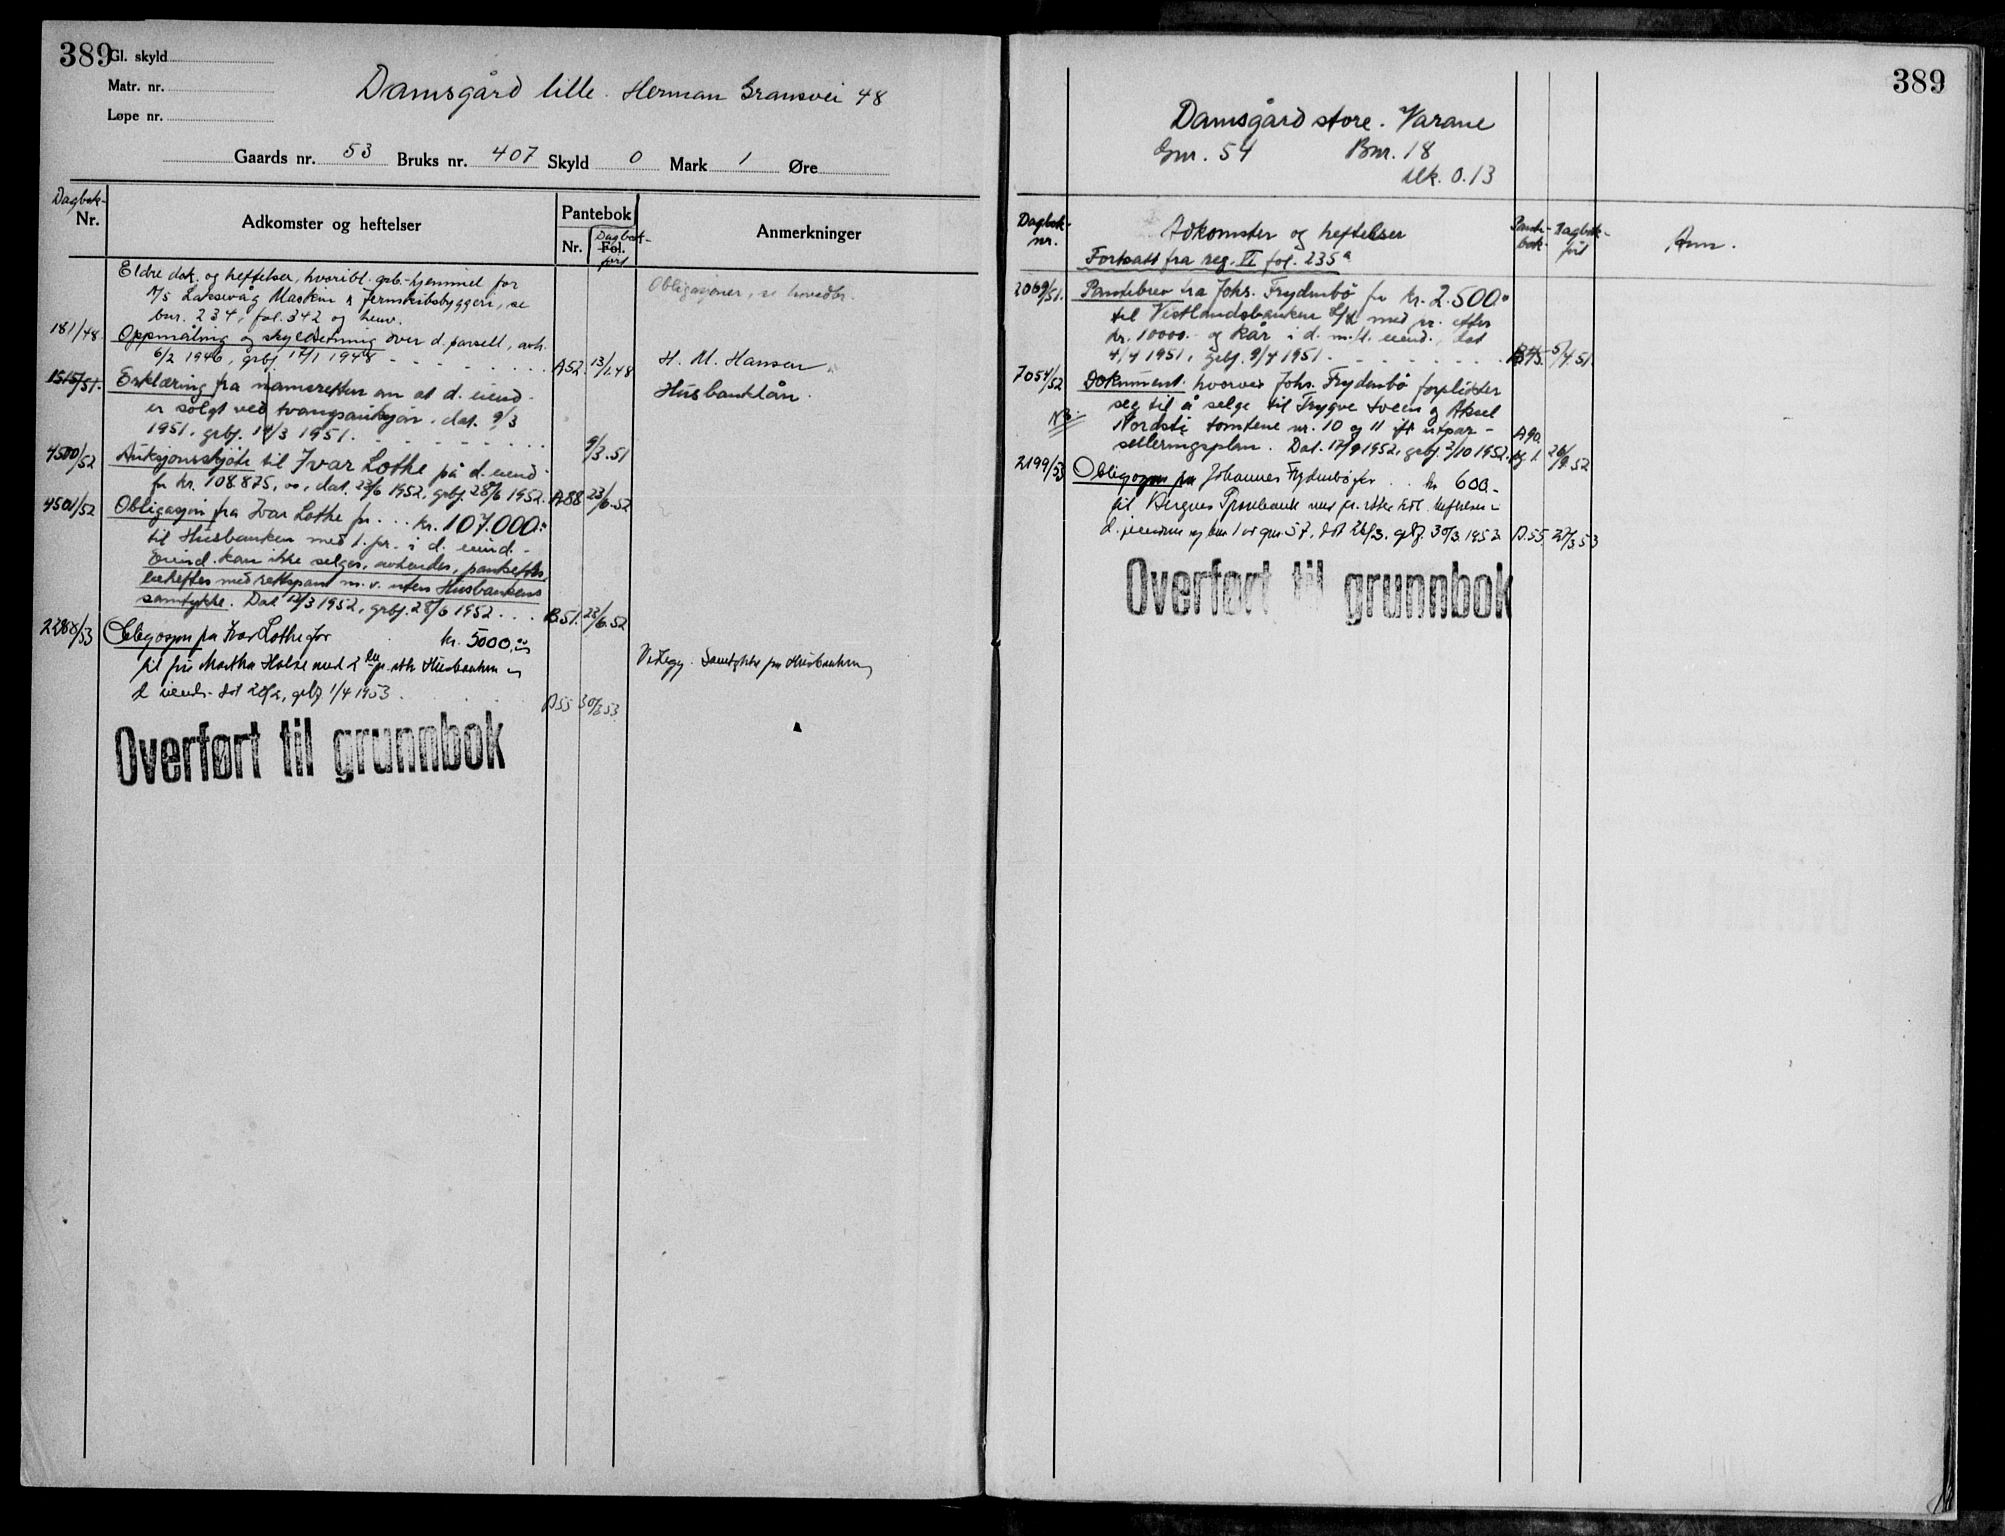 389
Gl. skyld
Matr. nr.
Løpe nr.
Damsgård lille. Herman Gransvei 48
Gaards nr. 53 Bruks nr. 407 Skyld 0 Mark 1 Øre
Dagbok-
Nr.
Adkomster og heftelser
Pantebok
Nr.
Dagbok-
Fol.
ført
Anmerkninger
Eldre dok. og heftelser, hvoribl. grb. hjemmel for
A/S Laksevåg Maskin & Jernskibsbyggeri, se
bnr. 234, fol. 342 og henv.
Obligasjoner, se hovedbr.
181/48 Oppmåling og skyldsetning over d. parsell, avh.
6/2 1946, grbf. 17/1 1948 A52 13/1.48
H. M. Hansen
1515/51. Erklæring fra namsretten om at d. eiend.
er solgt ved tvangsauksjon, dat. 9/3
1951, grbf. 14/3 1951. 9/3.51
Husbanklån.
4500/52 Auksjonsskjøte til Ivar Lothe på d. eiend.
for kr. 108.875,00, dat. 23/6 1952, grbf. 28/6 1952. A88 23/6.52
4501/52 Obligasjon fra Ivar Lothe for ... kr. 107.000.00
til Husbanken med 1. pr. i d. eiend.
Eiend. kan ikke selges, avhendes, pantsettes,
beheftes med rettspant m.v. uten Husbankens
samtykke. Dat. 12/3 1952, grbf. 28/6 1952 ... B.51. 23/6.52
2288/53 Obligasjon fra Ivar Lothe for kr. 5000.00
til fru Martha Holse med 2 pr. etter Husbanken i
d. eiend. dat 28/2, grbf 1/4 1953. B55 30/3 53
Vilegg. Samtykke fra Husbanken
Overført til grunnbok
389
Damsgård store. Varane
Gnr. 54 Bnr. 18
sk. 0.13
Dagbok-
nr.
Adkomster og heftelser
Pante-
bok-
Dagbok-
ført
Anm.
Fortsatt fra reg. VI fol. 235a
2069/51. Pantebrev fra Johs. Frydenbø for kr. 2.500.00
til Vestlandsbanken L/L med pr. etter
kr. 10000.- og kår i d. m.fl. eiend., dat
4/4 1951, grbf. 9/4 1951. B45. 5/4.51.
7054/52 Dokument hvorved Johs. Frydenbø forplikter
seg til å selge til Trygve Sveen og Aksel
NB. Nordsti tomtene nr. 10 og 11 ift utpar-
selleringsplan. Dat. 17/9 1952, grbf. 2/10 1952. A90 26/9.52
2199/53 Obligasjon fra Johannes Frydenbø for .. kr 600.-
til Bergens Privatbank med pr. etter tidl. heftelser i
d. eiendom og bnr 1 av gnr 57. dat 26/3, grbf. 30/3 1953 B.55, 27/3 53
Overført til grunnbok